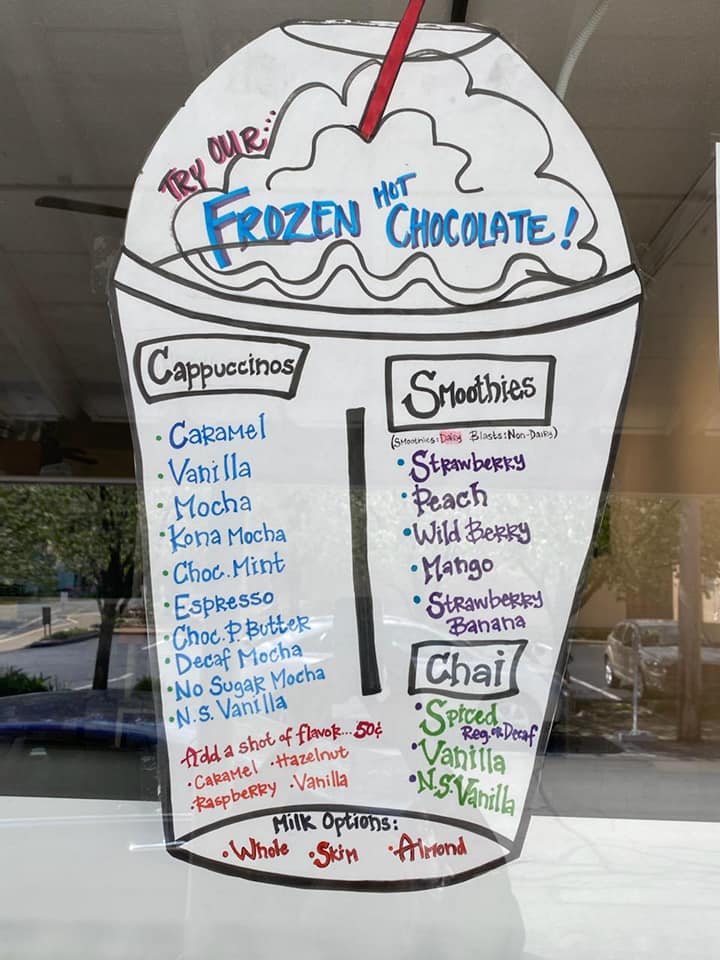 TRY OUR...
FROZEN HOT CHOCOLATE!
Cappuccinos
• Caramel
• Vanilla
• Mocha
• Kona Mocha
• Choc. Mint
• Espresso
• Choc. P. Butter
• Decaf Mocha
• No Sugar Mocha
• N.S. Vanilla
Add a shot of flavor... 50¢
• Caramel • Hazelnut
• Raspberry • Vanilla
Smoothies
(Smoothies: Dairy Blasts: Non-Dairy)
• Strawberry
• Peach
• Wild Berry
• Mango
• Strawberry
Banana
Chai
• Spiced
Reg. or Decaf
• Vanilla
• N.S. Vanilla
Milk Options:
• Whole • Skim • Almond